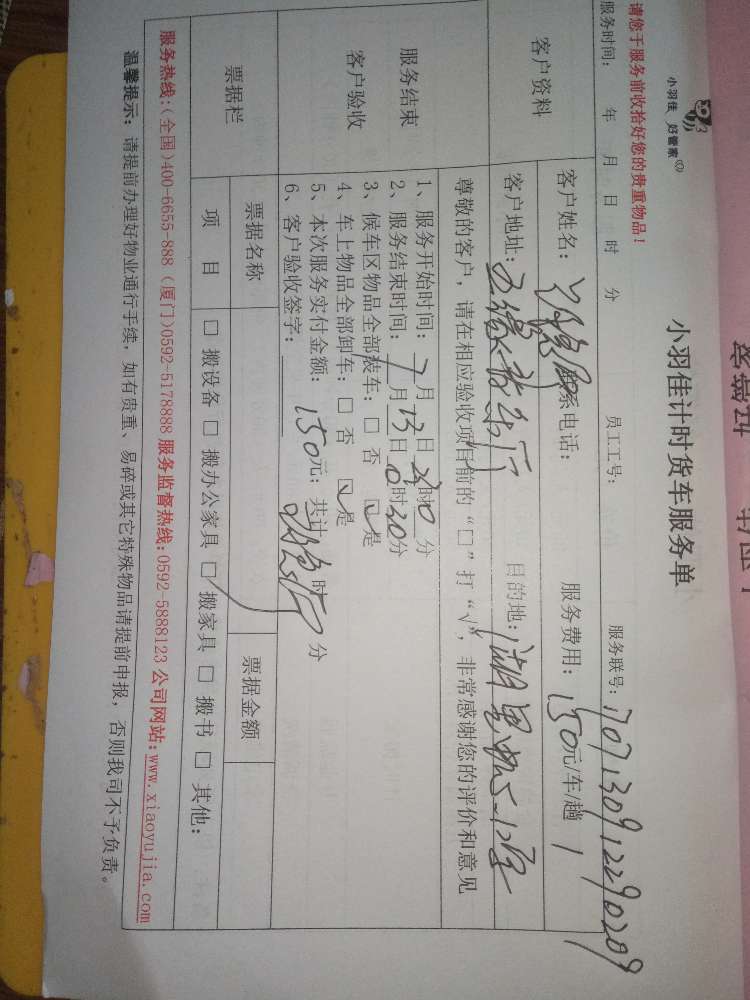 小羽佳 好管家
请您于服务前收拾好您的贵重物品!
小羽佳计时货车服务单
服务时间: 年 月 日 时 分 员工工号: 服务联号: 1707130912290209
客户资料
客户姓名: 系电话: 服务费用: 150元/车/趟
客户地址: 目的地:
尊敬的客户, 请在相应验收项目前的“□”打“√”, 非常感谢您的评价和意见
服务结束
客户验收
1、服务开始时间: 月 日 时 分
2、服务结束时间: 7月13日 时20分
3、候车区物品全部装车: □ 否 ☑ 是
4、车上物品全部卸车: □ 否 ☑ 是
5、本次服务实付金额: 150元; 共计 时 分
6、客户验收签字:
票据栏
票据名称 票据金额
项 目 □ 搬设备 □ 搬办公家具 ☑ 搬家具 □ 搬书 □ 其他:
服务热线:(全国)400-6655-888 (厦门)0592-5178888 服务监督热线:0592-5888123 公司网站:www.xiaoyujia.com
温馨提示: 请提前办理好物业通行手续, 如有贵重、易碎或其它特殊物品请提前申报, 否则我司不予负责。